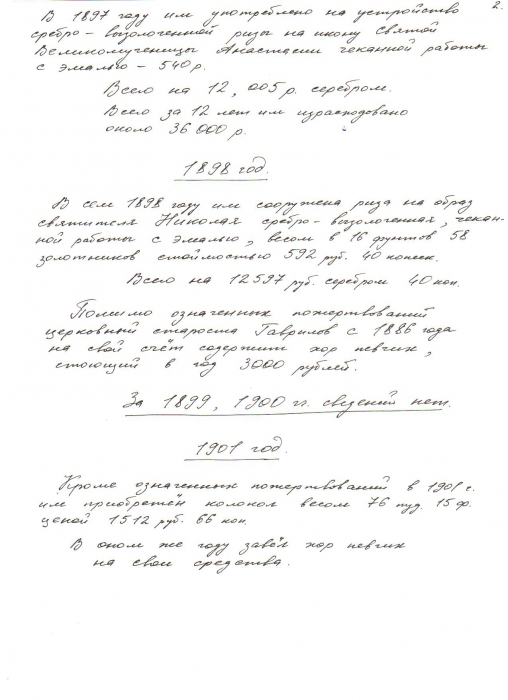 2.
В 1897 году им употреблено на устройство
сребро-вызолоченной ризы на икону Святой
Великомученицы Анастасии чеканной работы
с эмалью – 540 р.
Всего на 12,005 р. серебром.
Всего за 12 лет им израсходовано
около 36000 р.
1898 год.
В сем 1898 году им сооружена риза на образ
святителя Николая сребро-вызолоченная, чекан-
ной работы с эмалью, весом в 16 фунтов 58
золотников стоимостью 592 руб. 40 копеек.
Всего на 12597 руб. серебром 40 коп.
Помимо означенных пожертвований
церковный староста Гаврилов с 1886 года
на свой счёт содержит хор певчих,
стоющий в год 3000 рублей.
За 1899, 1900 гг. сведений нет.
1901 год.
Кроме означенных пожертвований в 1901 г.
им приобретён колокол весом 76 пуд. 15 ф.
ценой 1512 руб. 66 коп.
В оном же году завёл хор певчих
на свои средства.